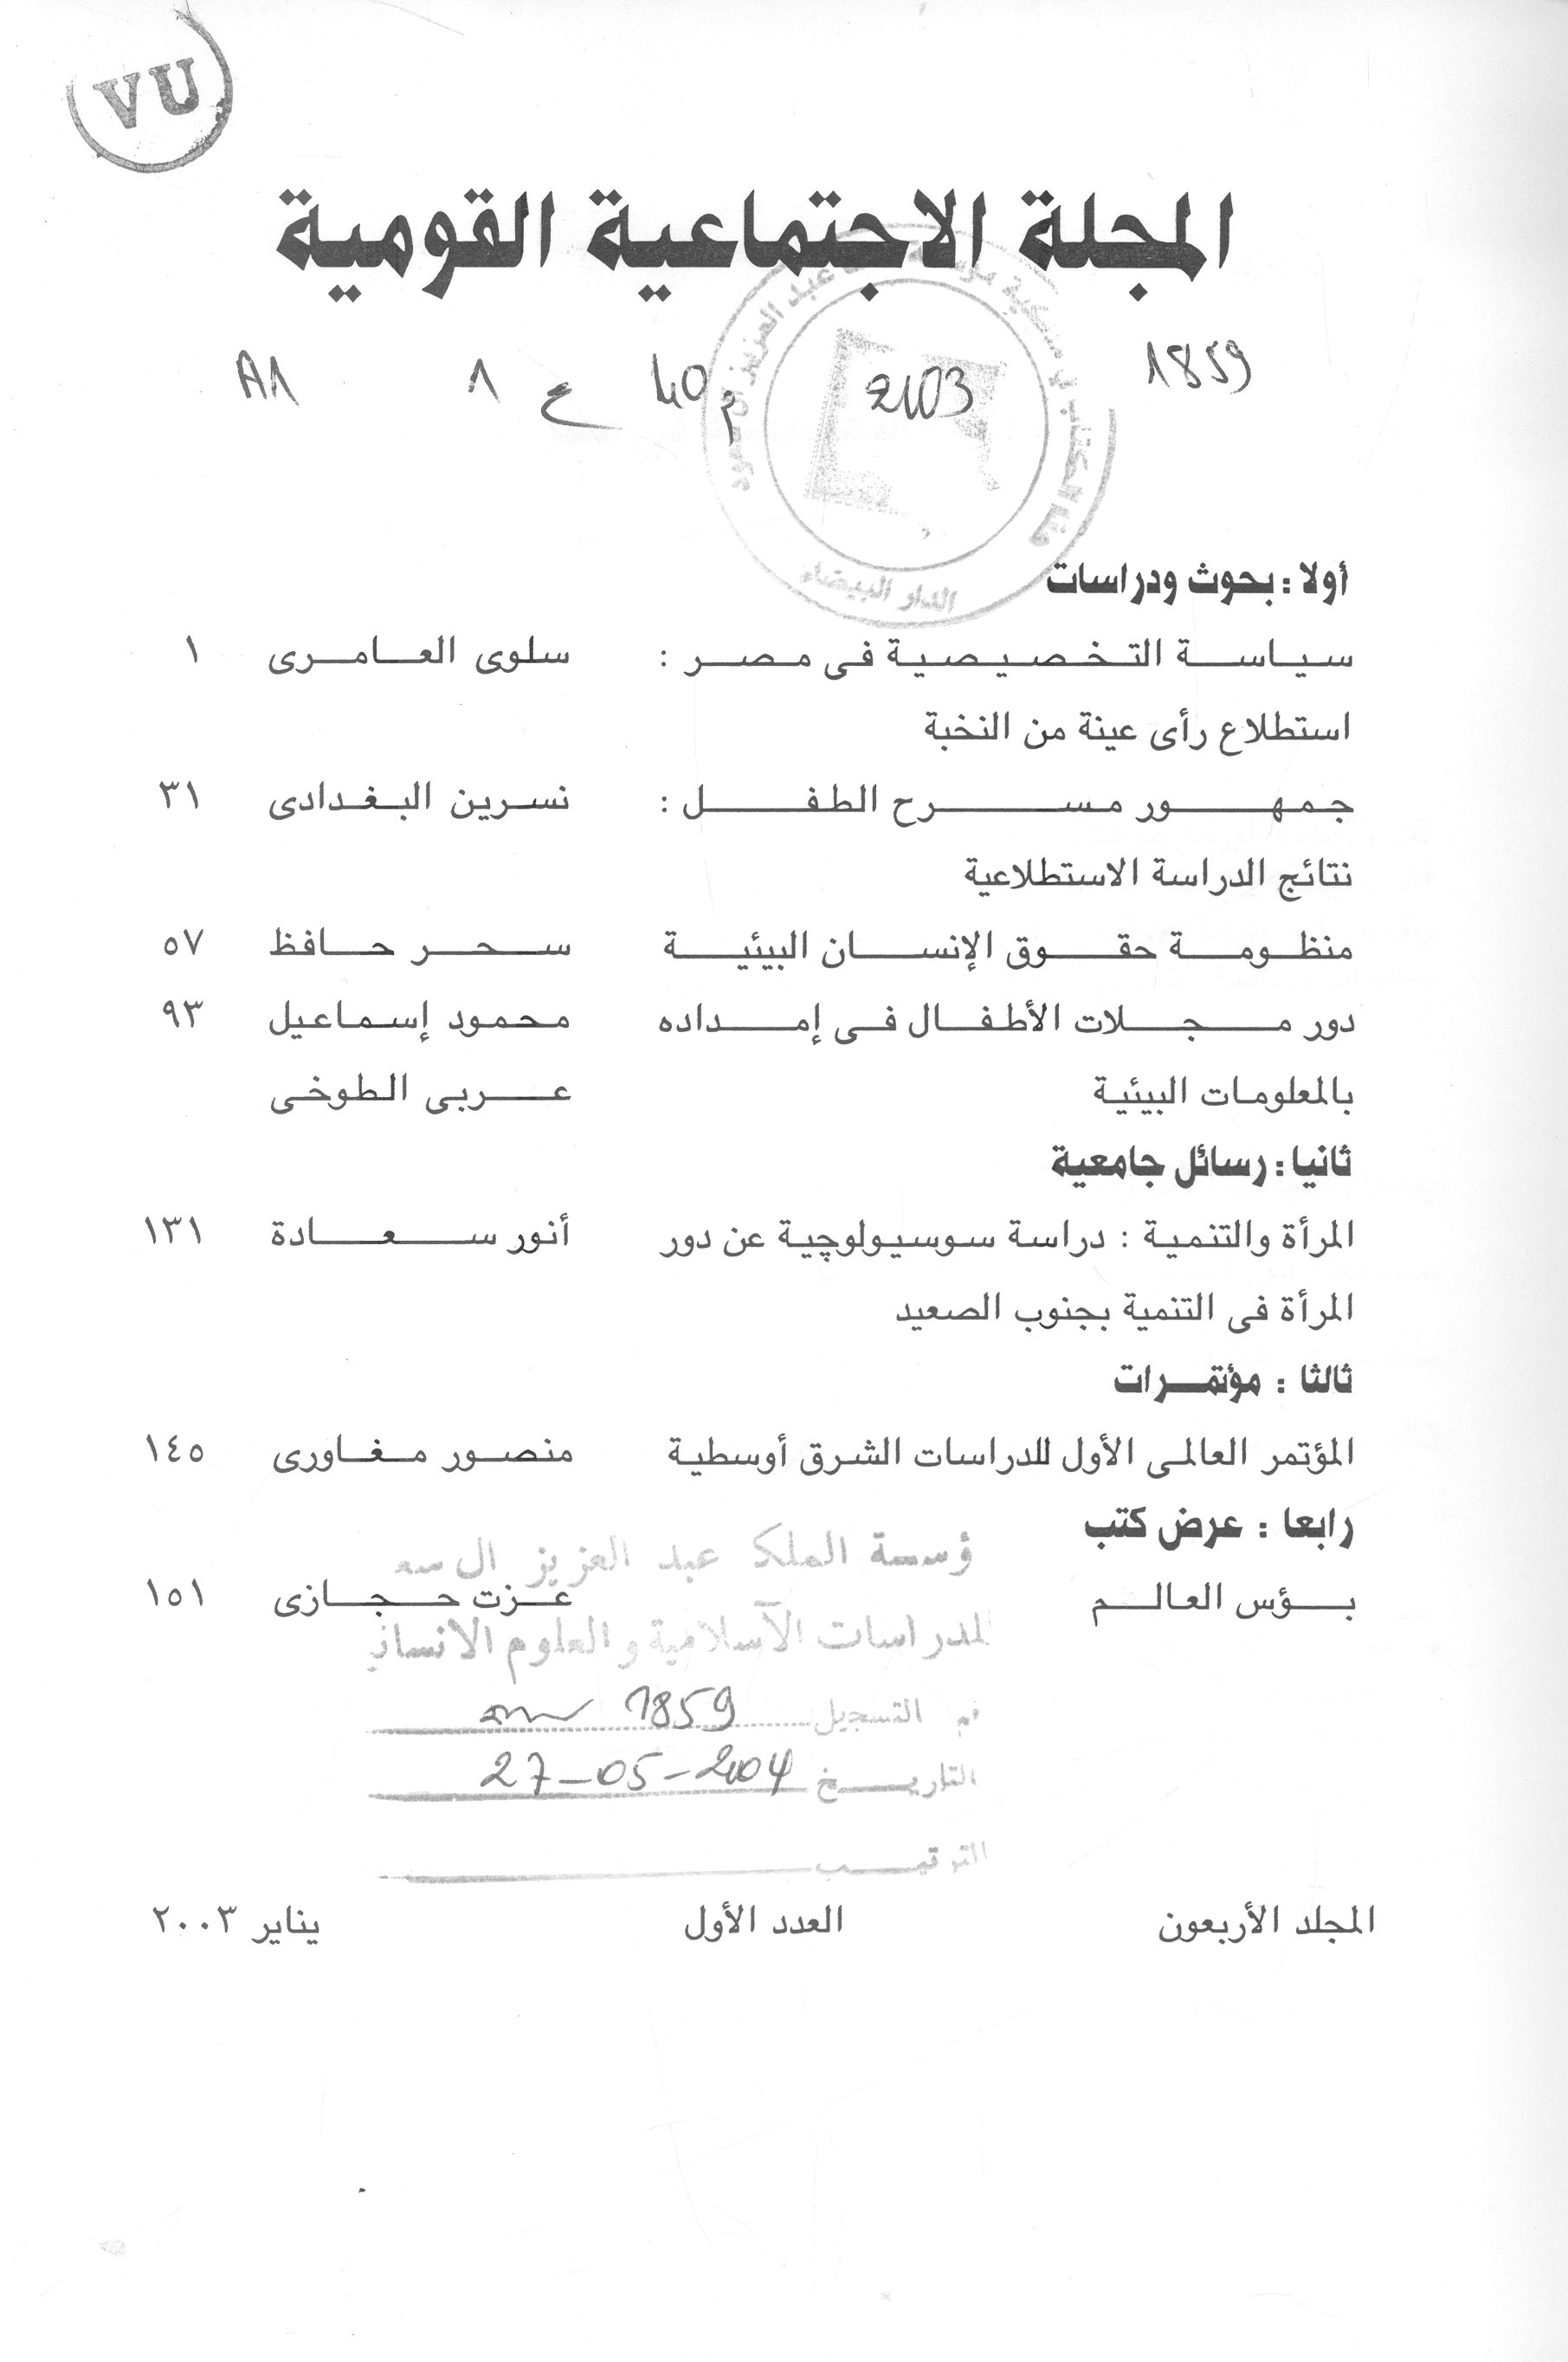 VU
المجلة الاجتماعية القومية
1859 2003 م 40 ع 1 A1
الدار البيضاء
أولا : بحوث ودراسات
سياسة التخصيصية فى مصر : سلوى العامرى ١
استطلاع رأى عينة من النخبة
جمهور مسرح الطفل : نسرين البغدادى ٣١
نتائج الدراسة الاستطلاعية
منظومة حقوق الإنسان البيئية سحر حافظ ٥٧
دور مجلات الأطفال فى إمداده محمود إسماعيل ٩٣
بالمعلومات البيئية عربى الطوخى
ثانيا : رسائل جامعية
المرأة والتنمية : دراسة سوسيولوچية عن دور أنور سعادة ١٣١
المرأة فى التنمية بجنوب الصعيد
ثالثا : مؤتمرات
المؤتمر العالمى الأول للدراسات الشرق أوسطية منصور مغاورى ١٤٥
رابعا : عرض كتب
ؤسسة الملك عبد العزيز ال سع
بؤس العالم عزت حجازى ١٥١
لدراسات الآسلامية والعلوم الانسان
التسجيل 1859
التاريخ 27-05-2004
الترتيب
المجلد الأربعون العدد الأول يناير ٢٠٠٣